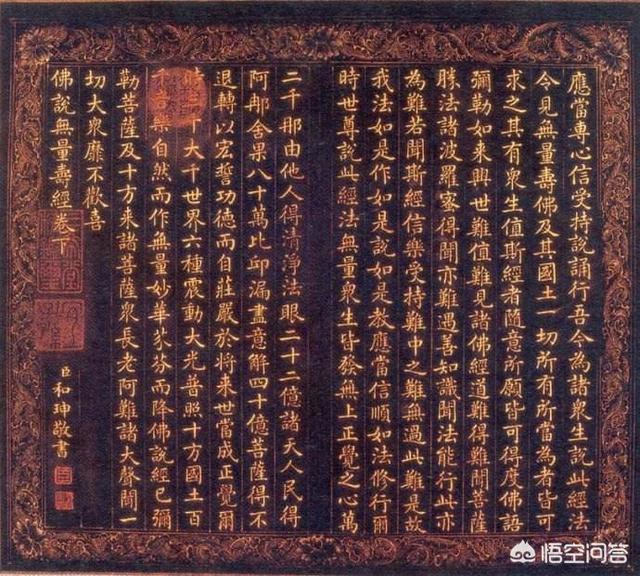 應當專心信受持說誦行吾今為諸衆生說此經法
令見無量壽佛及其國土一切所有所當為者皆可
求之其有衆生值斯經者隨意所願皆可得度佛語
彌勒如来興世難值難見諸佛經道難得難聞菩薩
勝法諸波羅蜜得聞亦難遇善知識聞法能行此亦
為難若聞斯經信樂受持難中之難無過此難是故
我法如是作如是說如是教應當信順如法修行爾
時世尊說此經法無量衆生皆發無上正覺之心萬
二千那由他人得清淨法眼二十二億諸天人民得
阿那舍果八十萬比邱漏盡意解四十億菩薩得不
退轉以宏誓功德而自莊嚴於將来世當成正覺爾
時三千大千世界六種震動大光普照十方國土百
千音樂自然而作無量妙華芬芬而降佛說經已彌
勒菩薩及十方来諸菩薩衆長老阿難諸大聲聞一
切大衆靡不歡喜
佛說無量壽經卷下
臣和珅敬書
悟空问答